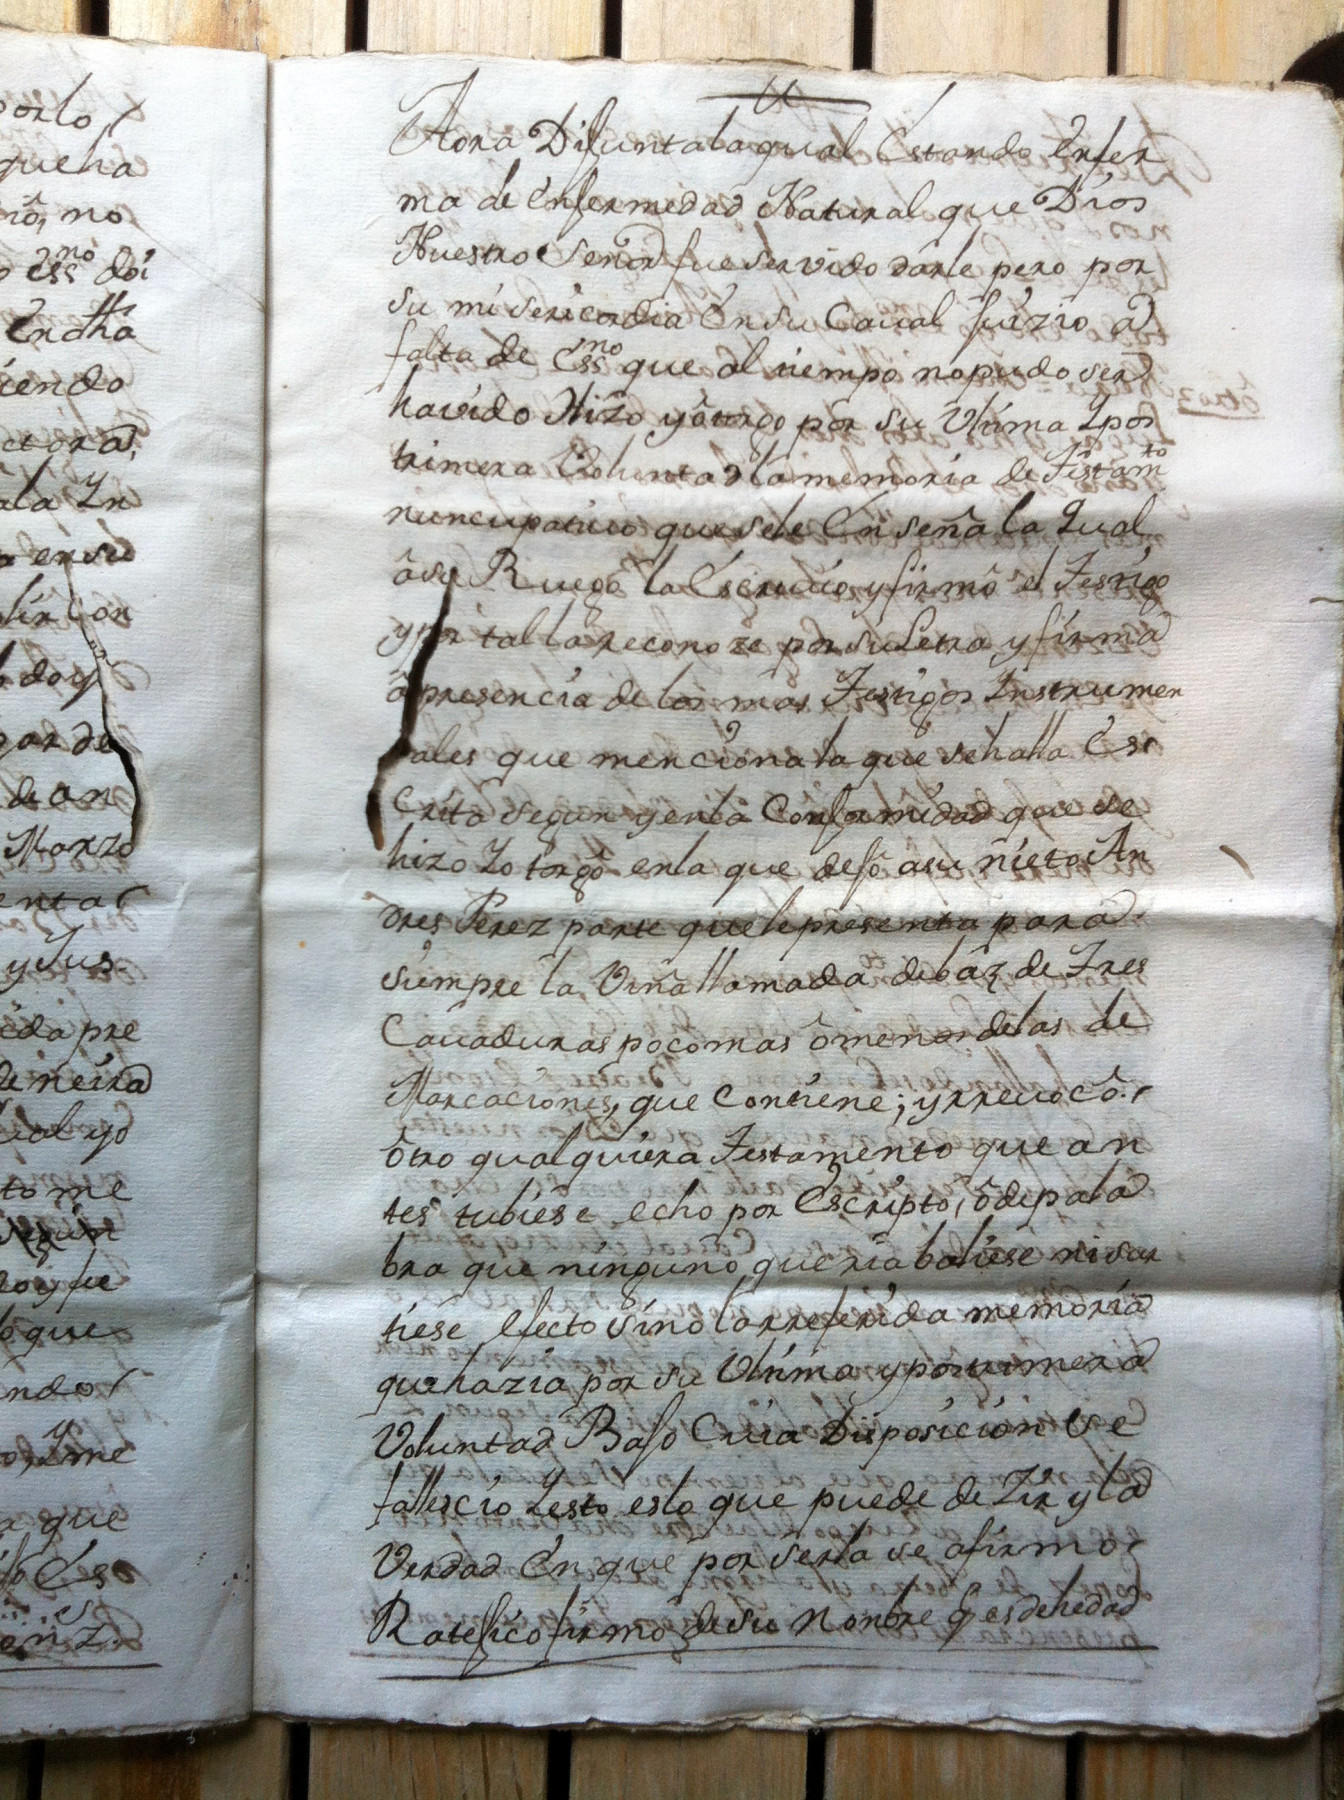 porlo
que ha
no
essno doi
En dha
iendo
ctora,
ala Yn
en su
lir con
doy
gar de
de an
Marzo
enta
y Jus
eda pre
de neira
cial yo
to me
segun
que
endo
Yme
que
Es
Aora Difunta la qual Estando Enfer
ma de Enfermedad Natural que Dios
Nuestro Señor fue servido darle pero por
su misericordia En su Caval Juizio â
falta de Essno que al tiempo no pudo ser
havido Hizo y ôtorgo por su Vltima Y pos
trimera Voluntad la memoria de Testamto
nuncupativo que se le Enseña la Qual
â su Ruego la Escrivio y firmô el Testigo
y por tal la reconoze por su Letra y firma
â presencia de los mas Testigos Ynstrumen
tales que menciona la que se halla Es
Crita segun y en la Conformidad que se
hizo Y otorgô en la que dejô a su nieto An
dres Perez parte que le presenta para
siempre la Viña llamada debâz de Tres
Cavaduras poco mas ô menos de las de
Marcaciones, que Contiene; y rrevocô
ôtro qualquiera Testamento que an
tes tubiese echo por Escripto, ô de pala
bra que ninguno queria baliese ni sur
tiese efecto sino la rreferida memoria
que hazia por su Vltima y postrimera
Voluntad Bajo Cuia Disposicion se
fallescio Y esto es lo que puede deZir y la
Verdad En que por serla se afirmo
Ratefico firmo de su Nombre q es de hedad
ôtro